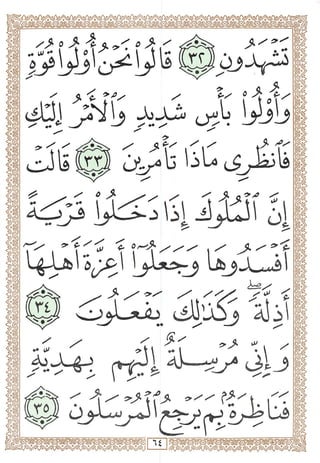 تَشْهَدُونِ ٣٢ قَالُوا۟ نَحْنُ أُو۟لُوا۟ قُوَّةٍ
وَأُو۟لُوا۟ بَأْسٍ شَدِيدٍ وَٱلْأَمْرُ إِلَيْكِ
فَٱنظُرِى مَاذَا تَأْمُرِينَ ٣٣ قَالَتْ
إِنَّ ٱلْمُلُوكَ إِذَا دَخَلُوا۟ قَرْيَةً
أَفْسَدُوهَا وَجَعَلُوٓا۟ أَعِزَّةَ أَهْلِهَآ
أَذِلَّةً ۖ وَكَذَٰلِكَ يَفْعَلُونَ ٣٤
وَإِنِّى مُرْسِلَةٌ إِلَيْهِم بِهَدِيَّةٍ
فَنَاظِرَةٌۢ بِمَ يَرْجِعُ ٱلْمُرْسَلُونَ ٣٥
٦٤